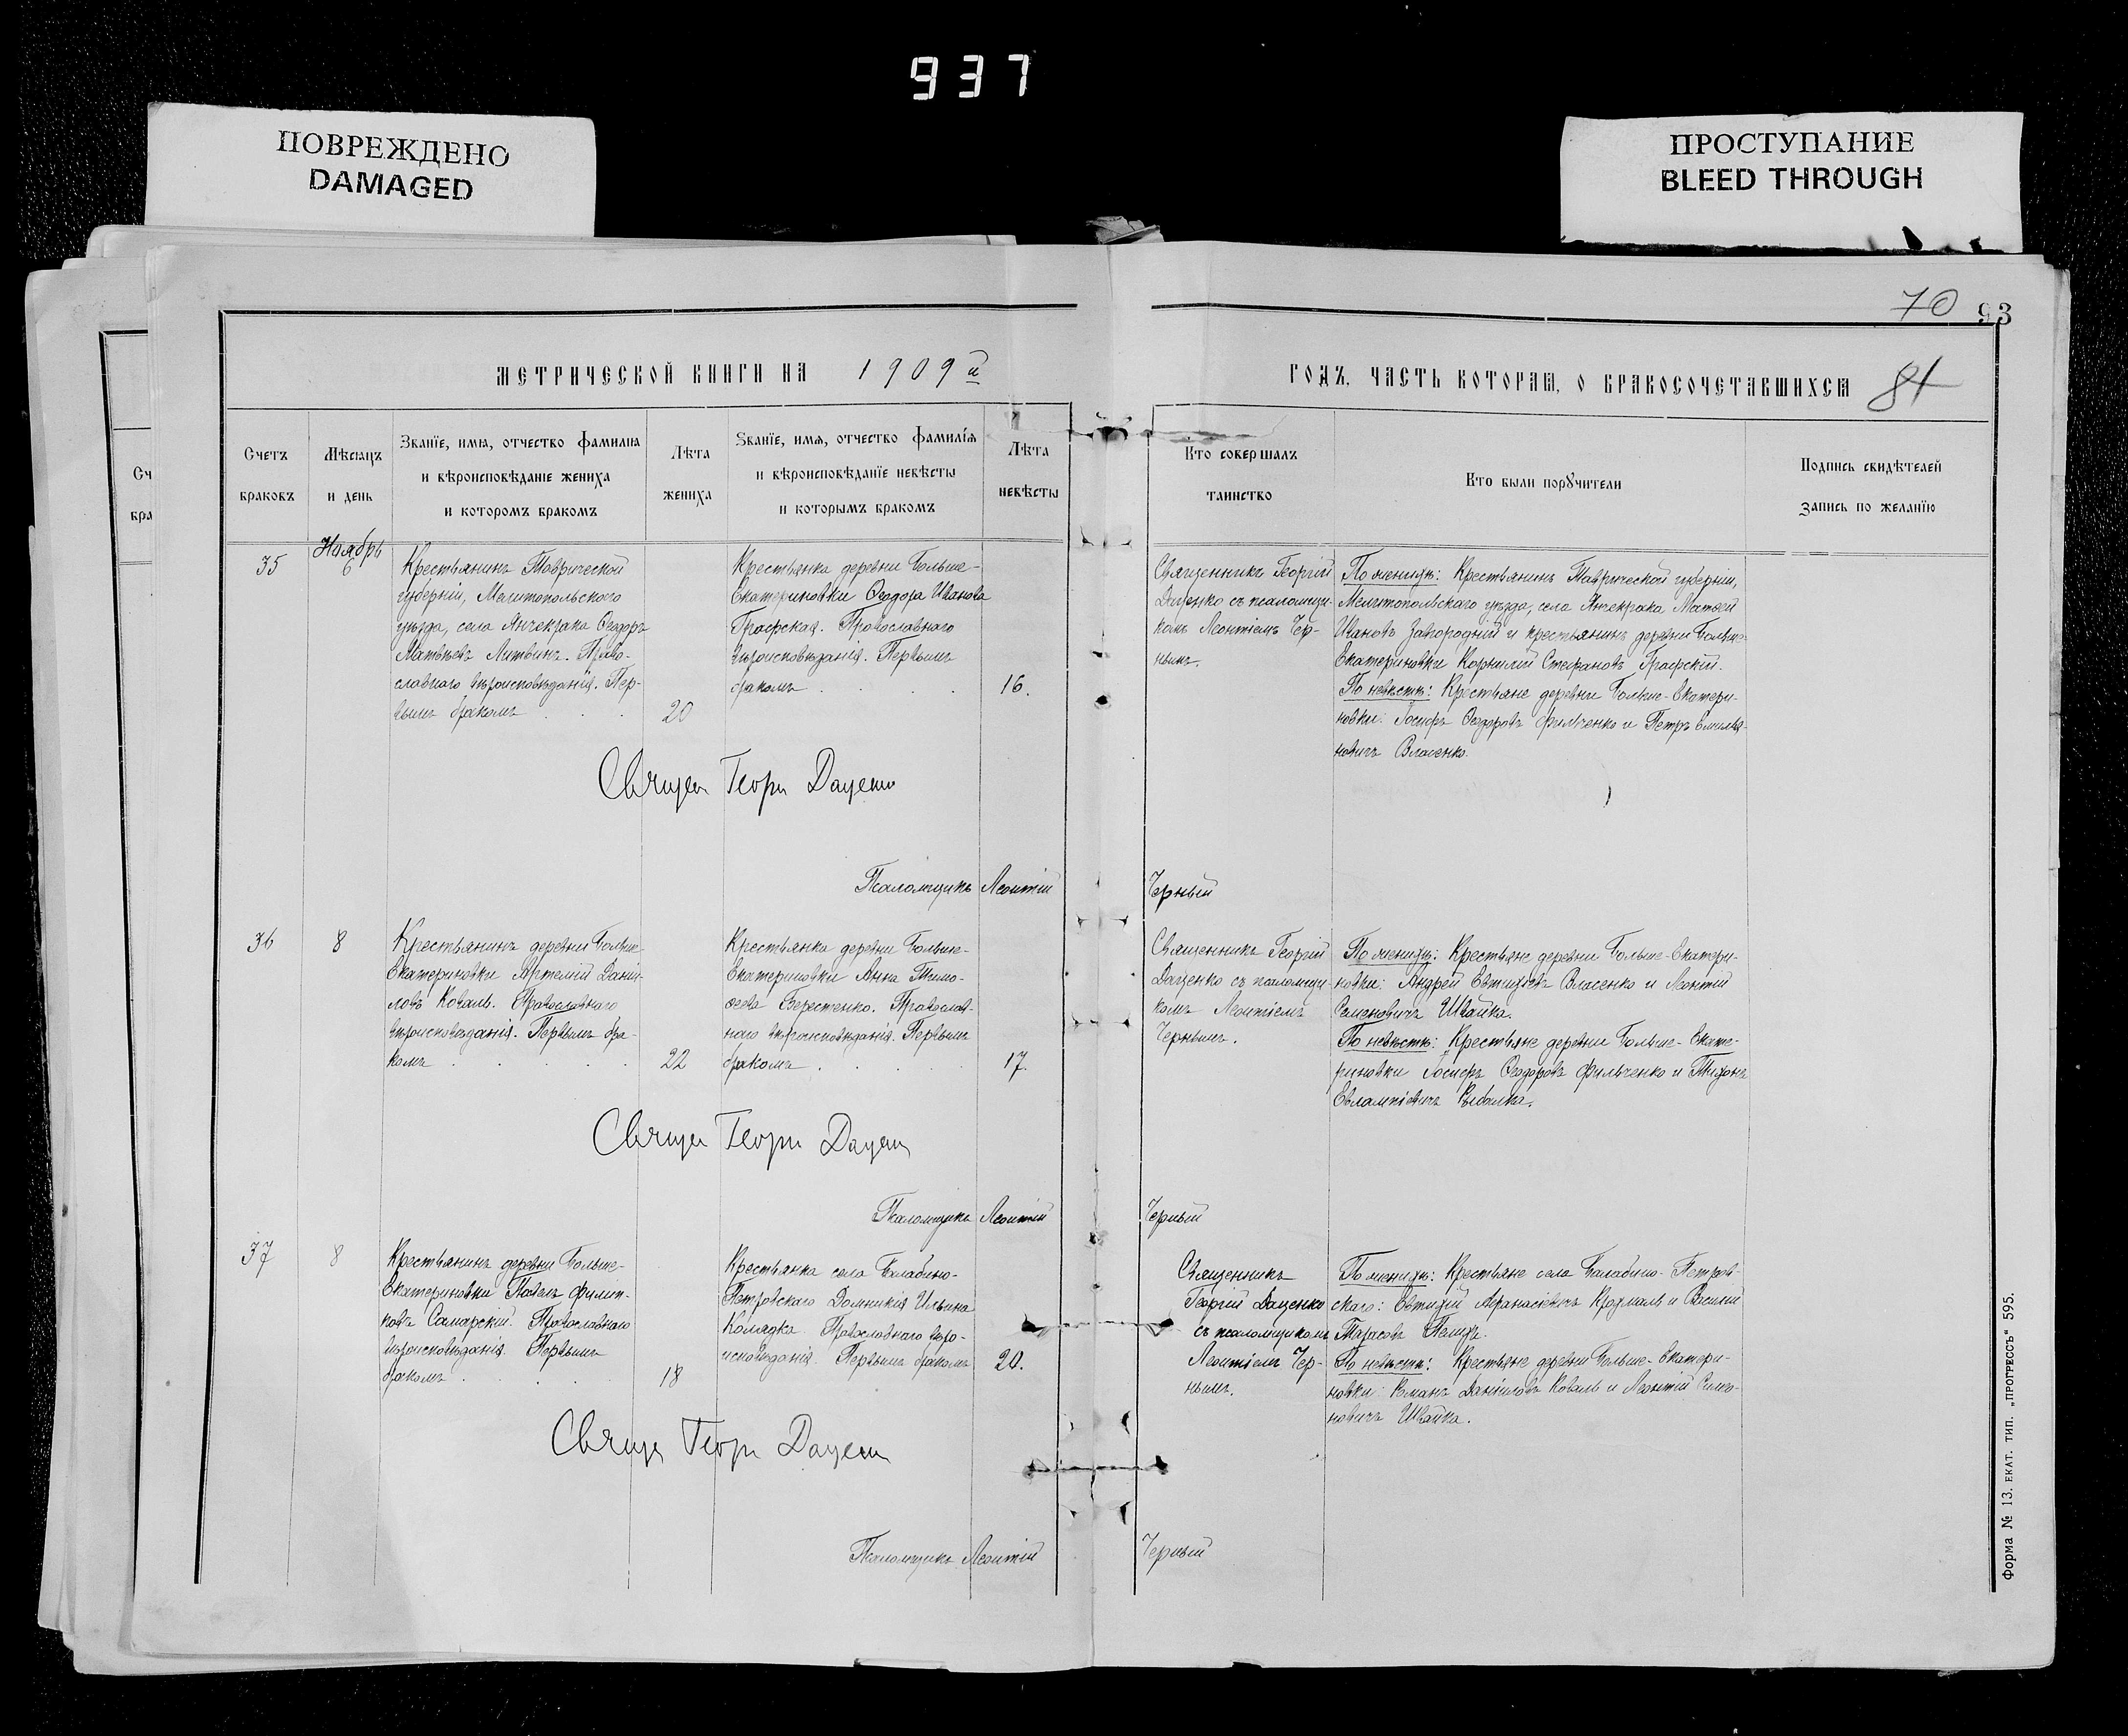 937
ПОВРЕЖДЕНО
DAMAGED
ПРОСТУПАНИЕ
BLEED THROUGH
70 93
МЕТРИЧЕСКОЙ КНИГИ НА 1909й
ГОДЪ, ЧАСТЬ ВТОРАЯ, О БРАКОСОЧЕТАВШИХСЯ
84
Счетъ
браковъ
Мѣсяцъ
и день
Званїе, имя, отчество фамилїя
и вѣроисповѣданїе жениха
и которомъ бракомъ
Лѣта
жениха
Званїе, имя, отчество фамилїя
и вѣроисповѣданїе невѣсты
и которымъ бракомъ
Лѣта
невѣсты
Кто совершалъ
таинство
Кто были порꙋчители
Подпись свидѣтелей
запись по желанїю
Сч
бра
35
Ноябрь
6
Крестьянинъ Таврической
губерніи, Мелитопольскаго
уѣзда, села Анчекрака Ѳеодоръ
Матвѣевъ Литвинъ. Право-
славнаго вѣроисповѣданія. Пер-
вымъ бракомъ . . .
20
Крестьянка деревни Больше-
Екатериновки Ѳеодора Иванова
Графская. Православнаго
вѣроисповѣданія. Первымъ
бракомъ . . . .
16.
Священникъ Георгій
Даценко съ псаломщи-
комъ Леонтіемъ Чер-
нымъ.
По женихѣ: Крестьянинъ Таврической губерніи,
Мелитопольскаго уѣзда, села Анчекрака Матвѣй
Ивановъ Завгородній и крестьянинъ деревни Больше-
Екатериновки Корнилій Стефановъ Графскій.
По невѣстѣ: Крестьяне деревни Больше-Екатери-
новки: Іосифъ Ѳеодоровъ Фильченко и Петръ Емилья-
новичъ Власенко.
Священ Георгі Даценко
Псаломщикъ Леонтій Черный
36
8
Крестьянинъ деревни Больше-
Екатериновки Артемій Дани-
ловъ Коваль. Православнаго
вѣроисповѣданія. Первымъ бра-
комъ . . . . .
22
Крестьянка деревни Больше-
Екатериновки Анна Тимо-
ѳеева Берестенко. Православ-
наго вѣроисповѣданія. Первымъ
бракомъ . . . .
17.
Священникъ Георгій
Даценко съ псаломщи-
комъ Леонтіемъ
Чернымъ.
По женихѣ: Крестьяне деревни Больше-Екатери-
новки: Андрей Евтихіевъ Власенко и Леонтій
Семеновичъ Швайка.
По невѣстѣ: Крестьяне деревни Больше-Екате-
риновки Іосифъ Ѳеодоровъ Фильченко и Тихонъ
Евлампіевичъ Рыбалка.
Священ Георгі Даценк
Псаломщикъ Леонтій Черный
37
8
Крестьянинъ деревни Больше-
Екатериновки Павелъ Филип-
повъ Самарскій. Православнаго
вѣроисповѣданія. Первымъ
бракомъ . . . .
18
Крестьянка села Балабино-
Петровскаго Домникія Ильина
Колядка. Православнаго вѣро-
исповѣданія. Первымъ бракомъ
20.
Священникъ
Георгій Даценко
съ псаломщикомъ
Леонтіемъ Чер-
нымъ.
По женихѣ: Крестьяне села Балабино-Петров-
скаго: Евтихій Афанасіевичъ Крохмаль и Василій
Тарасовъ
По невѣстѣ: Крестьяне деревни Больше-Екатери-
новки: Романъ Даниловъ Коваль и Леонтій Симео-
новичъ Швайка.
Священ Георгі Даценк
Псаломщикъ Леонтій Черный
Форма № 13. ЕКАТ. ТИП. „ПРОГРЕССЪ“ 595.